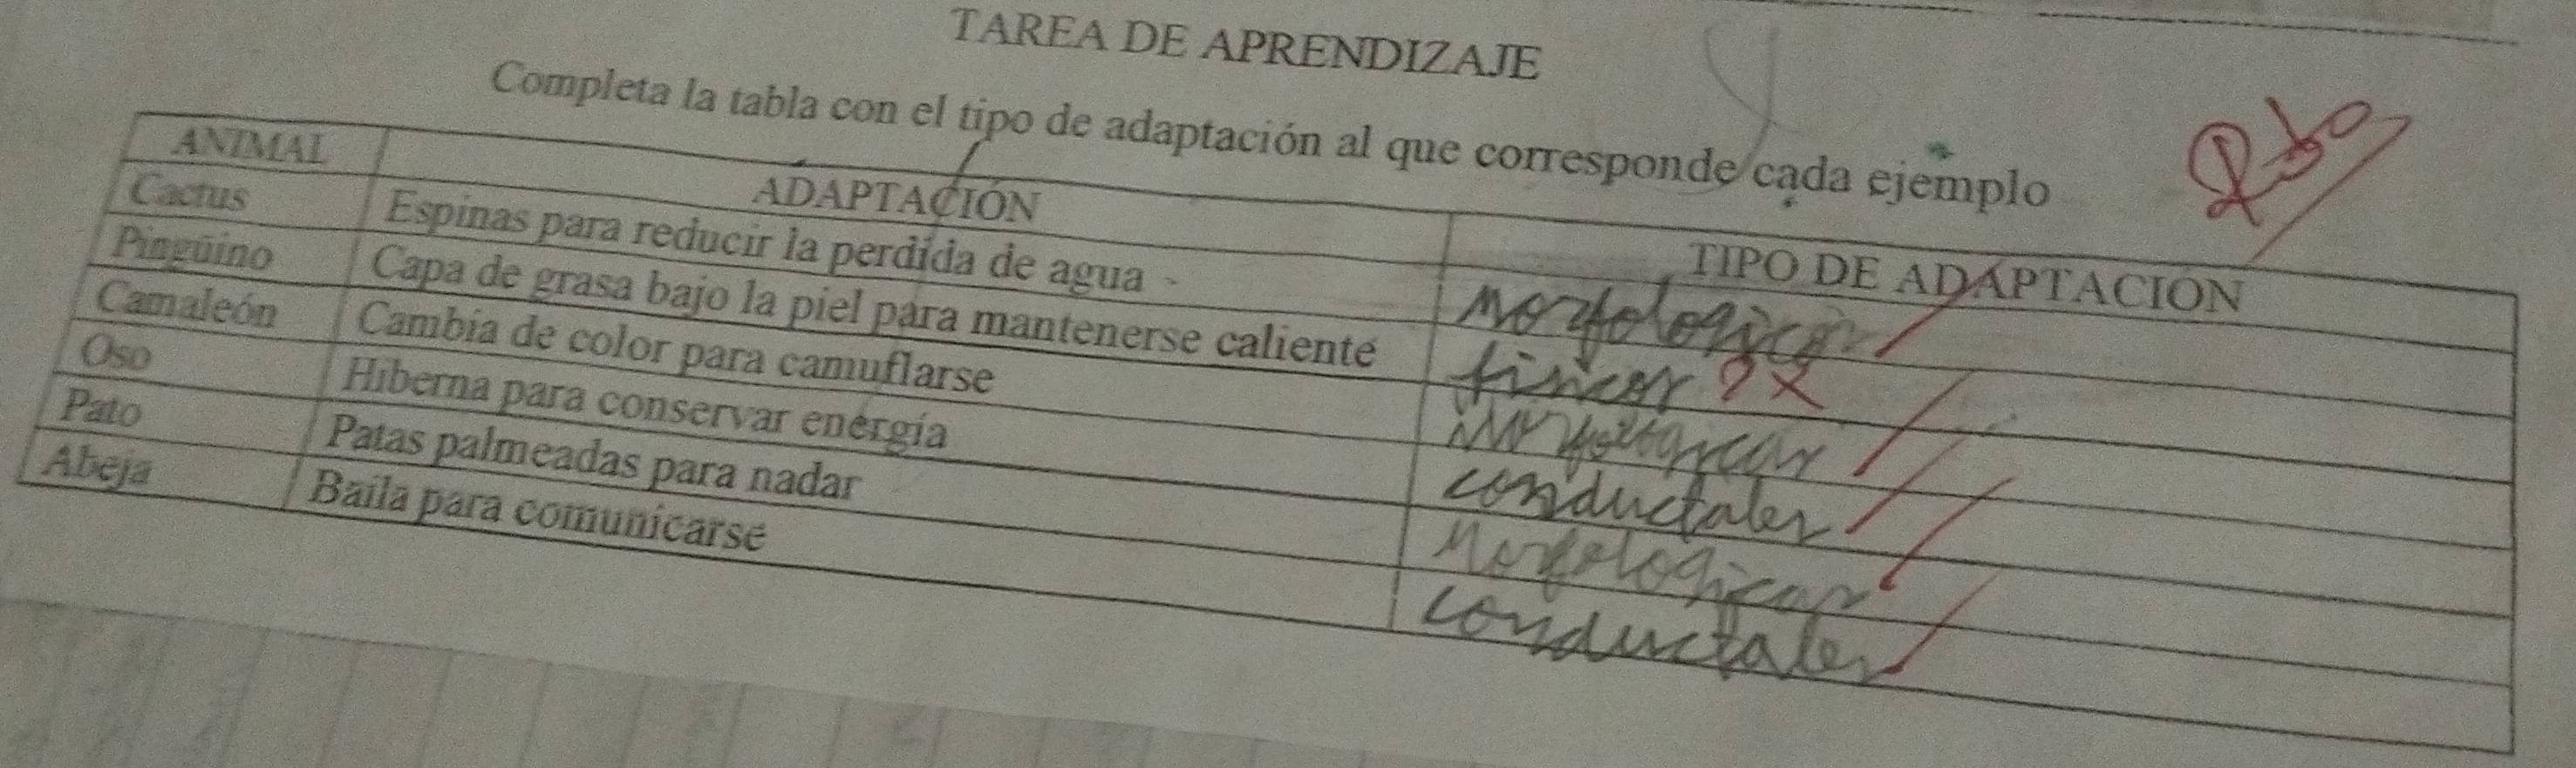 TAREA DE APRENDIZAJE
Completa la tabla con el tipo de adaptación al que corresponde cada ejemplo
ANIMAL ADAPTACIÓN TIPO DE ADAPTACIÓN
Cactus Espinas para reducir la perdida de agua Morfologicas
Pingüino Capa de grasa bajo la piel para mantenerse caliente fisicas ? X
Camaleón Cambia de color para camuflarse Morfologicas
Oso Hiberna para conservar energía conductales
Pato Patas palmeadas para nadar Morfologicas
Abeja Baila para comunicarse conductales